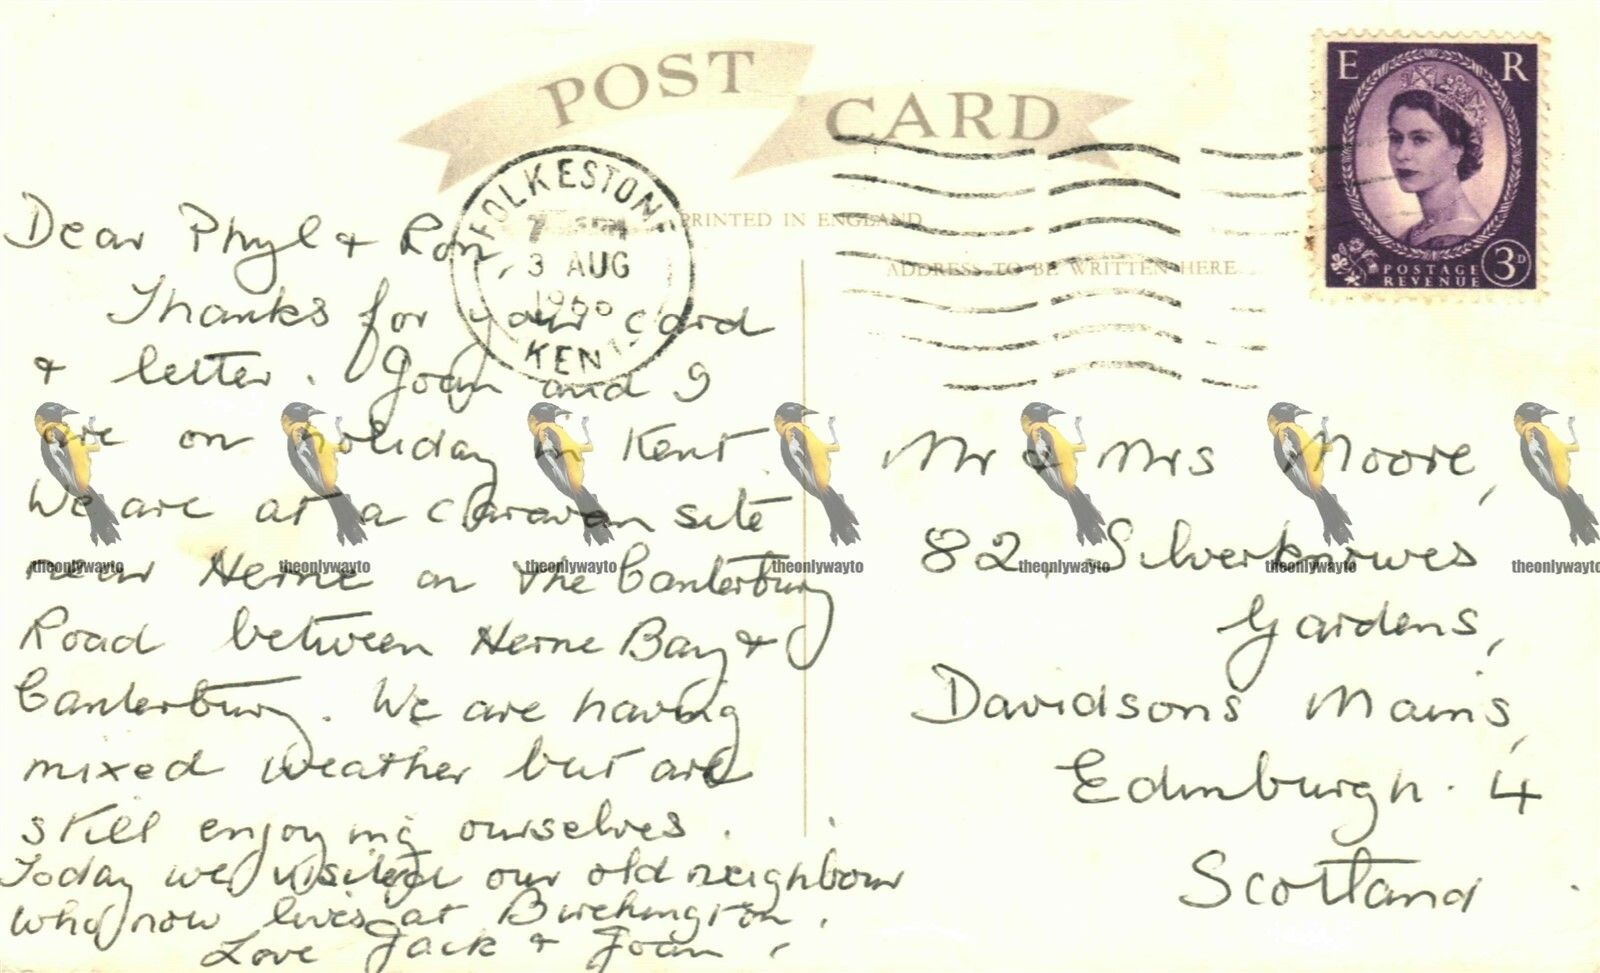 POST CARD
E R
POSTAGE
REVENUE
3D
FOLKESTONE
3 AUG
KENT
PRINTED IN ENGLAND
ADDRESS TO BE WRITTEN HERE
Dear Phyl & Ron,
Thanks for your card
& letter. Joan and I
are on holiday in Kent.
We are at a caravan site
near Herne on the Canterbury
Road between Herne Bay &
Canterbury. We are having
mixed weather but are
still enjoying ourselves.
Today we visited our old neighbour
who now lives at Birchington.
Love Jack & Joan.
Mr & Mrs Moore,
82, Silverknowes
Gardens,
Davidsons Mains,
Edinburgh. 4
Scotland.
theonlywayto theonlywayto theonlywayto theonlywayto theonlywayto theonlywayto theonlywayto